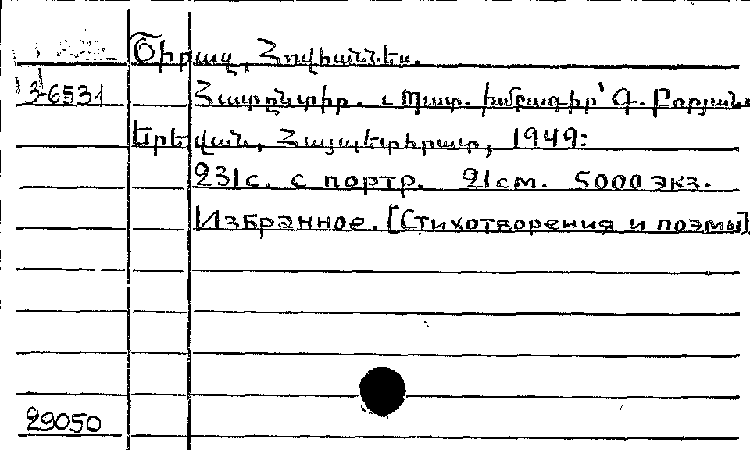 Շիրազ, Հովհաննես.
36531 Հատընտիր. Պատ. խմբագիր՝ Գ. Բորյան.
Երեվան, Հայպետհրատ, 1949:
231с. с портр. 21см. 5000 экз.
Избранное. [Стихотворения и поэмы]
29050